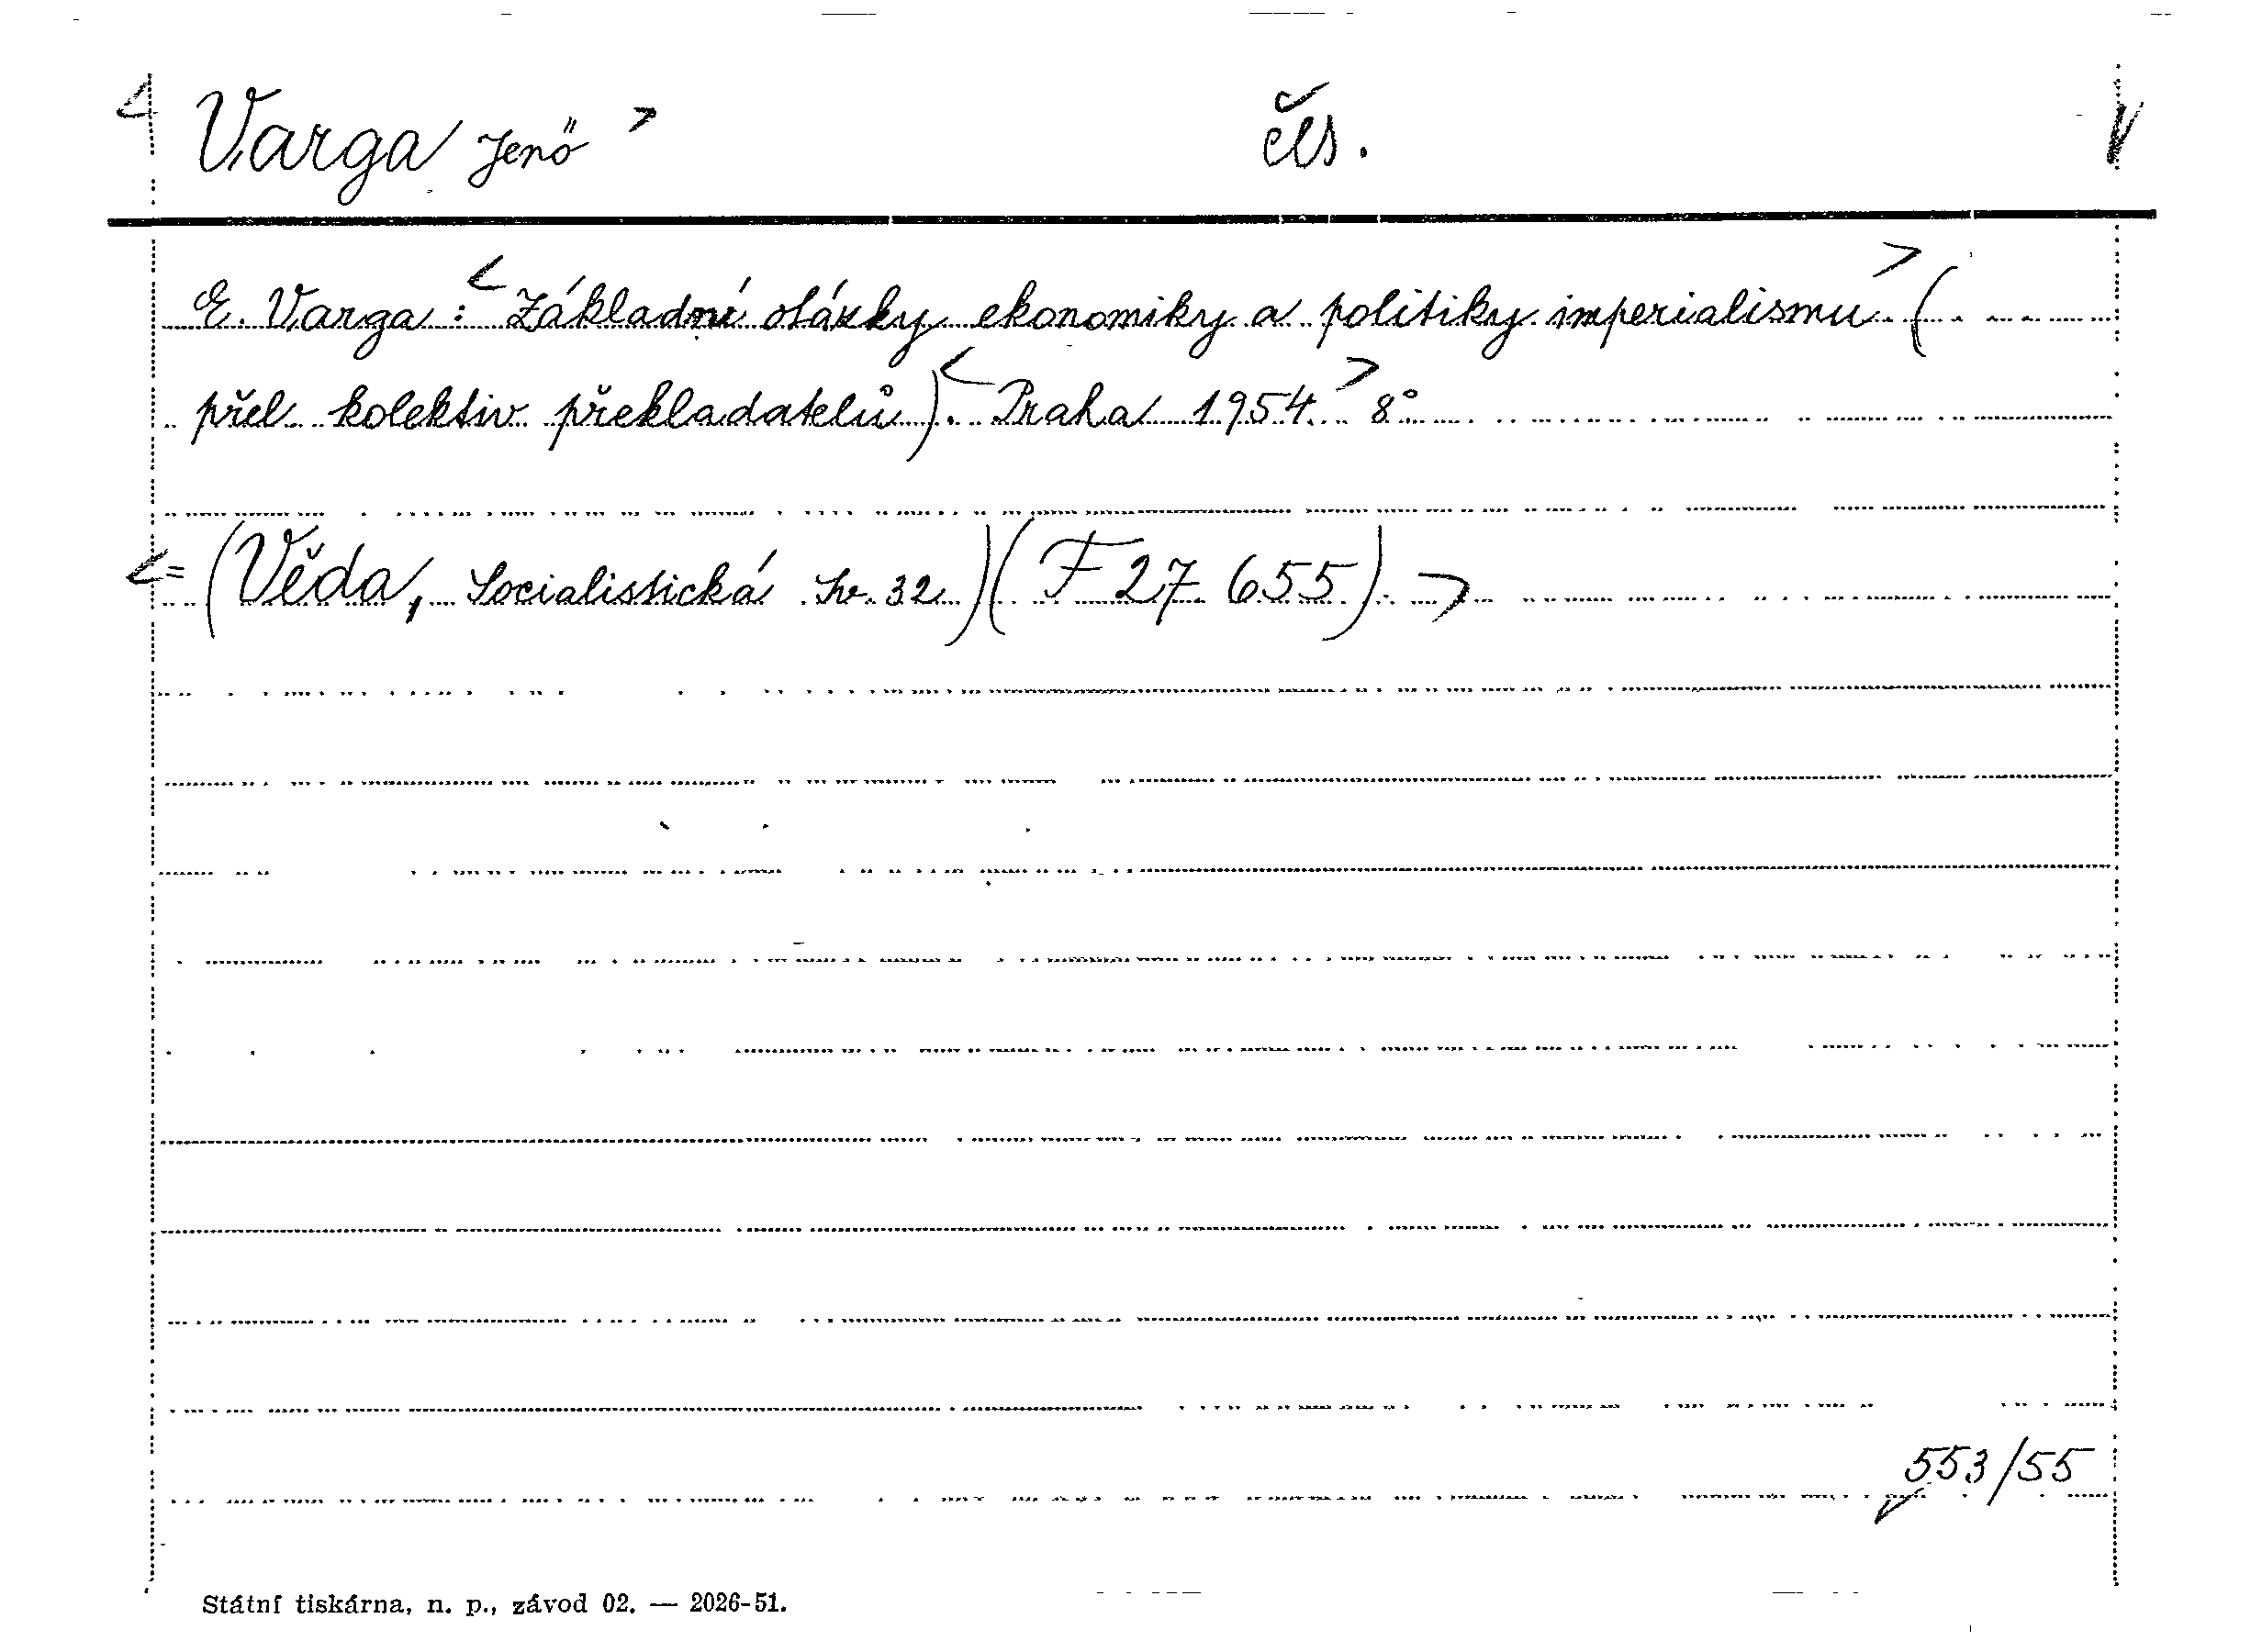 < Varga Jenö > čls.
E. Varga: <Základní otázky ekonomiky a politiky imperialismu> (
přel kolektiv překladatelů). <Praha 1954.> 8°
<= (Věda, Socialistická Sv. 32.)(F 27 655).>
553/55
Státní tiskárna, n. p., závod 02. — 2026-51.